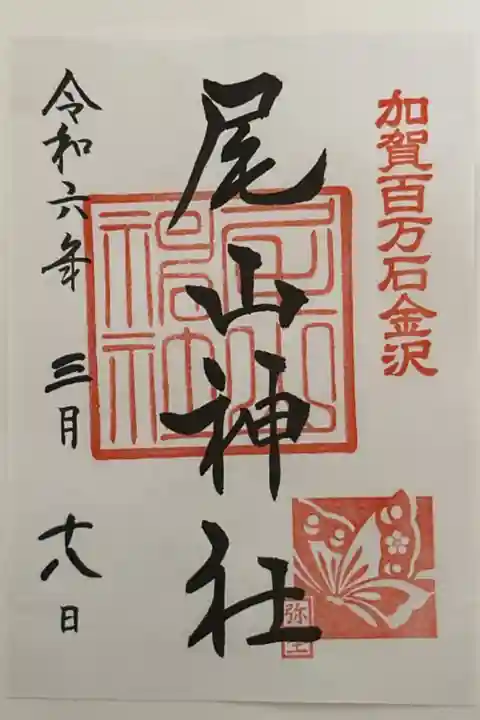 加賀百万石金沢
尾山神社
弥生
令和六年 三月 十八日